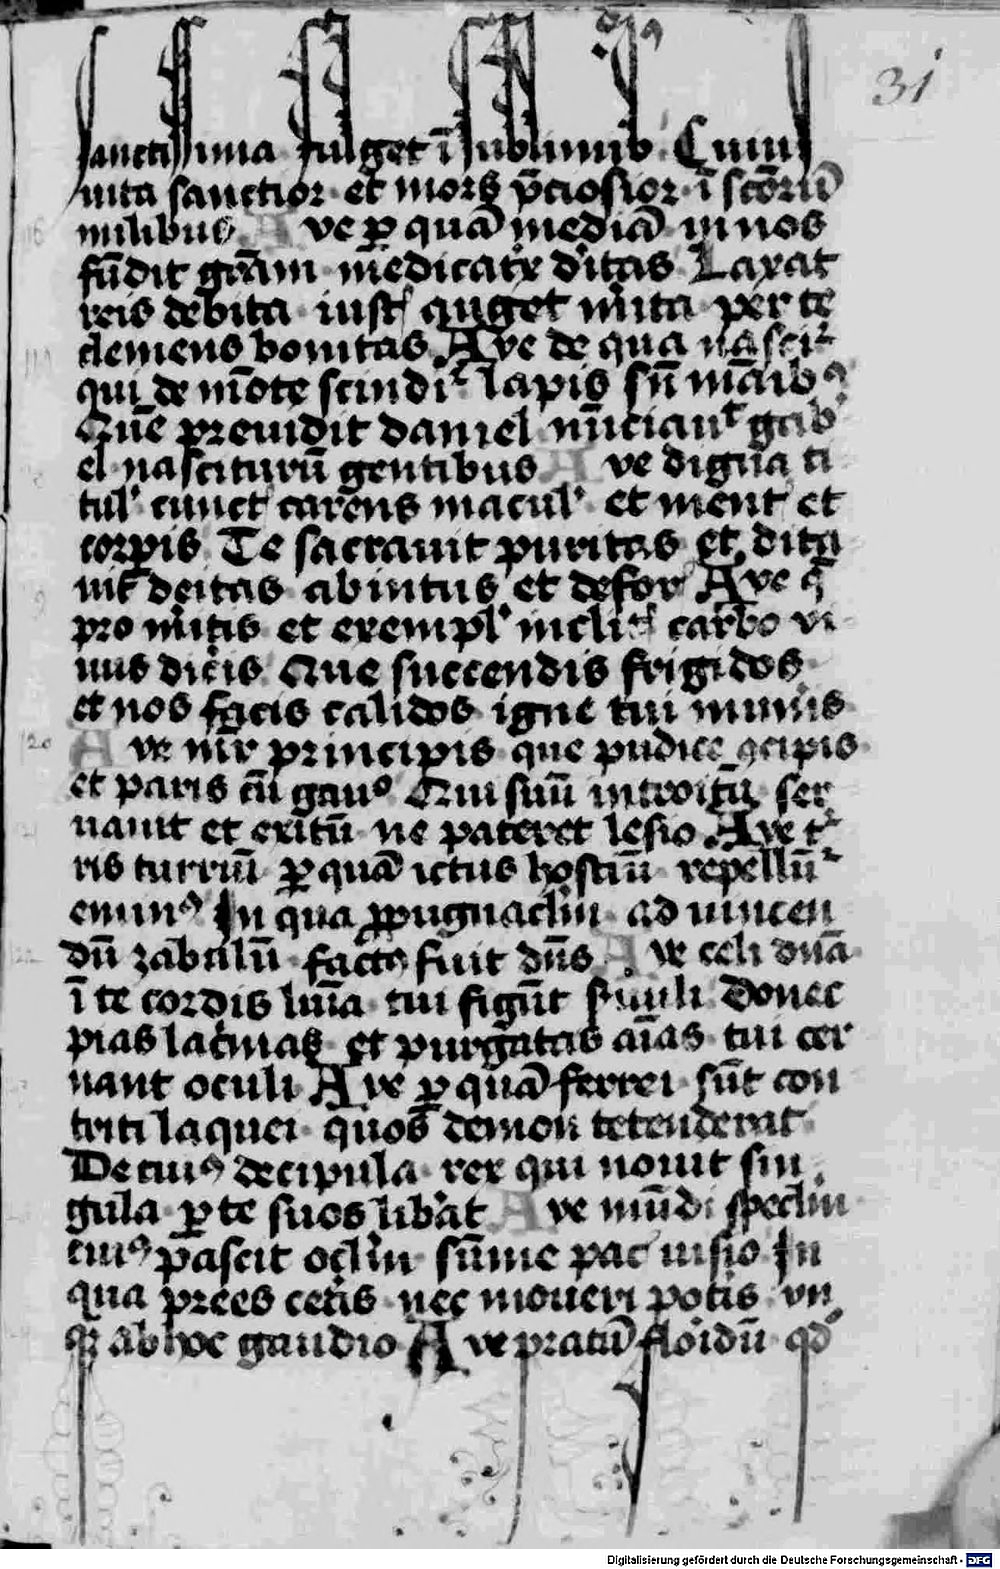 31
sanctissima fulget ī sublimib Cuius
uita sanctior et mors p̄ciosior ī sc̄orū
milibus Ave ꝑ quā mediā in nos
fūdit gr̄am medicatͥx dītas Laxat
reis debita iust auget mīta per te
clemens bonitas Ave de qua nascīt
qui de mōte scindiť lapis sn̄ manibꝰ
Quē preuidit daniel nūciauͭ gab
el nasciturū gentibus Ave digna ti
tul cunct carens macul et ment et
corpis Te sacrauit puritas et dita
uit deitas ab intus et defor Ave q̄
pro mītis et exempl inclit carbo vi
uus dicis Que succendis frigidos
et nos facis calidos igne tui numis
120
Ave mr̄ principis que pudice ꝯcipis
et paris cū gauꝰ Qui suū introitū ser
uauit et exitū ne pateret lesio Ave tr
ris turriū ꝑ quā ictus hostiū repellūt
eminꝰ In qua ꝓpugnaclm ad uincen
dū zabulū factꝰ fuit dn̄s Ave celi dn̄a
ī te cordis lim̄a tui figūt singuli Donec
pias lac̄mas et purgatas aīas tui cer
nant oculi Ave ꝑ quā ferrei sūt con
triti laquei quos demon tetenderat
De cuiꝰ decipula rex qui nouit sin
gula ꝑ te suos libat Ave mūdi speclm
cuiꝰ pascit oclm sūme pac uisio In
qua prees cet̄is nec moueri potis vn
qȝ ab hoc gaudio Ave pratū floidū qd̄
Digitalisierung gefördert durch die Deutsche Forschungsgemeinschaft - DFG